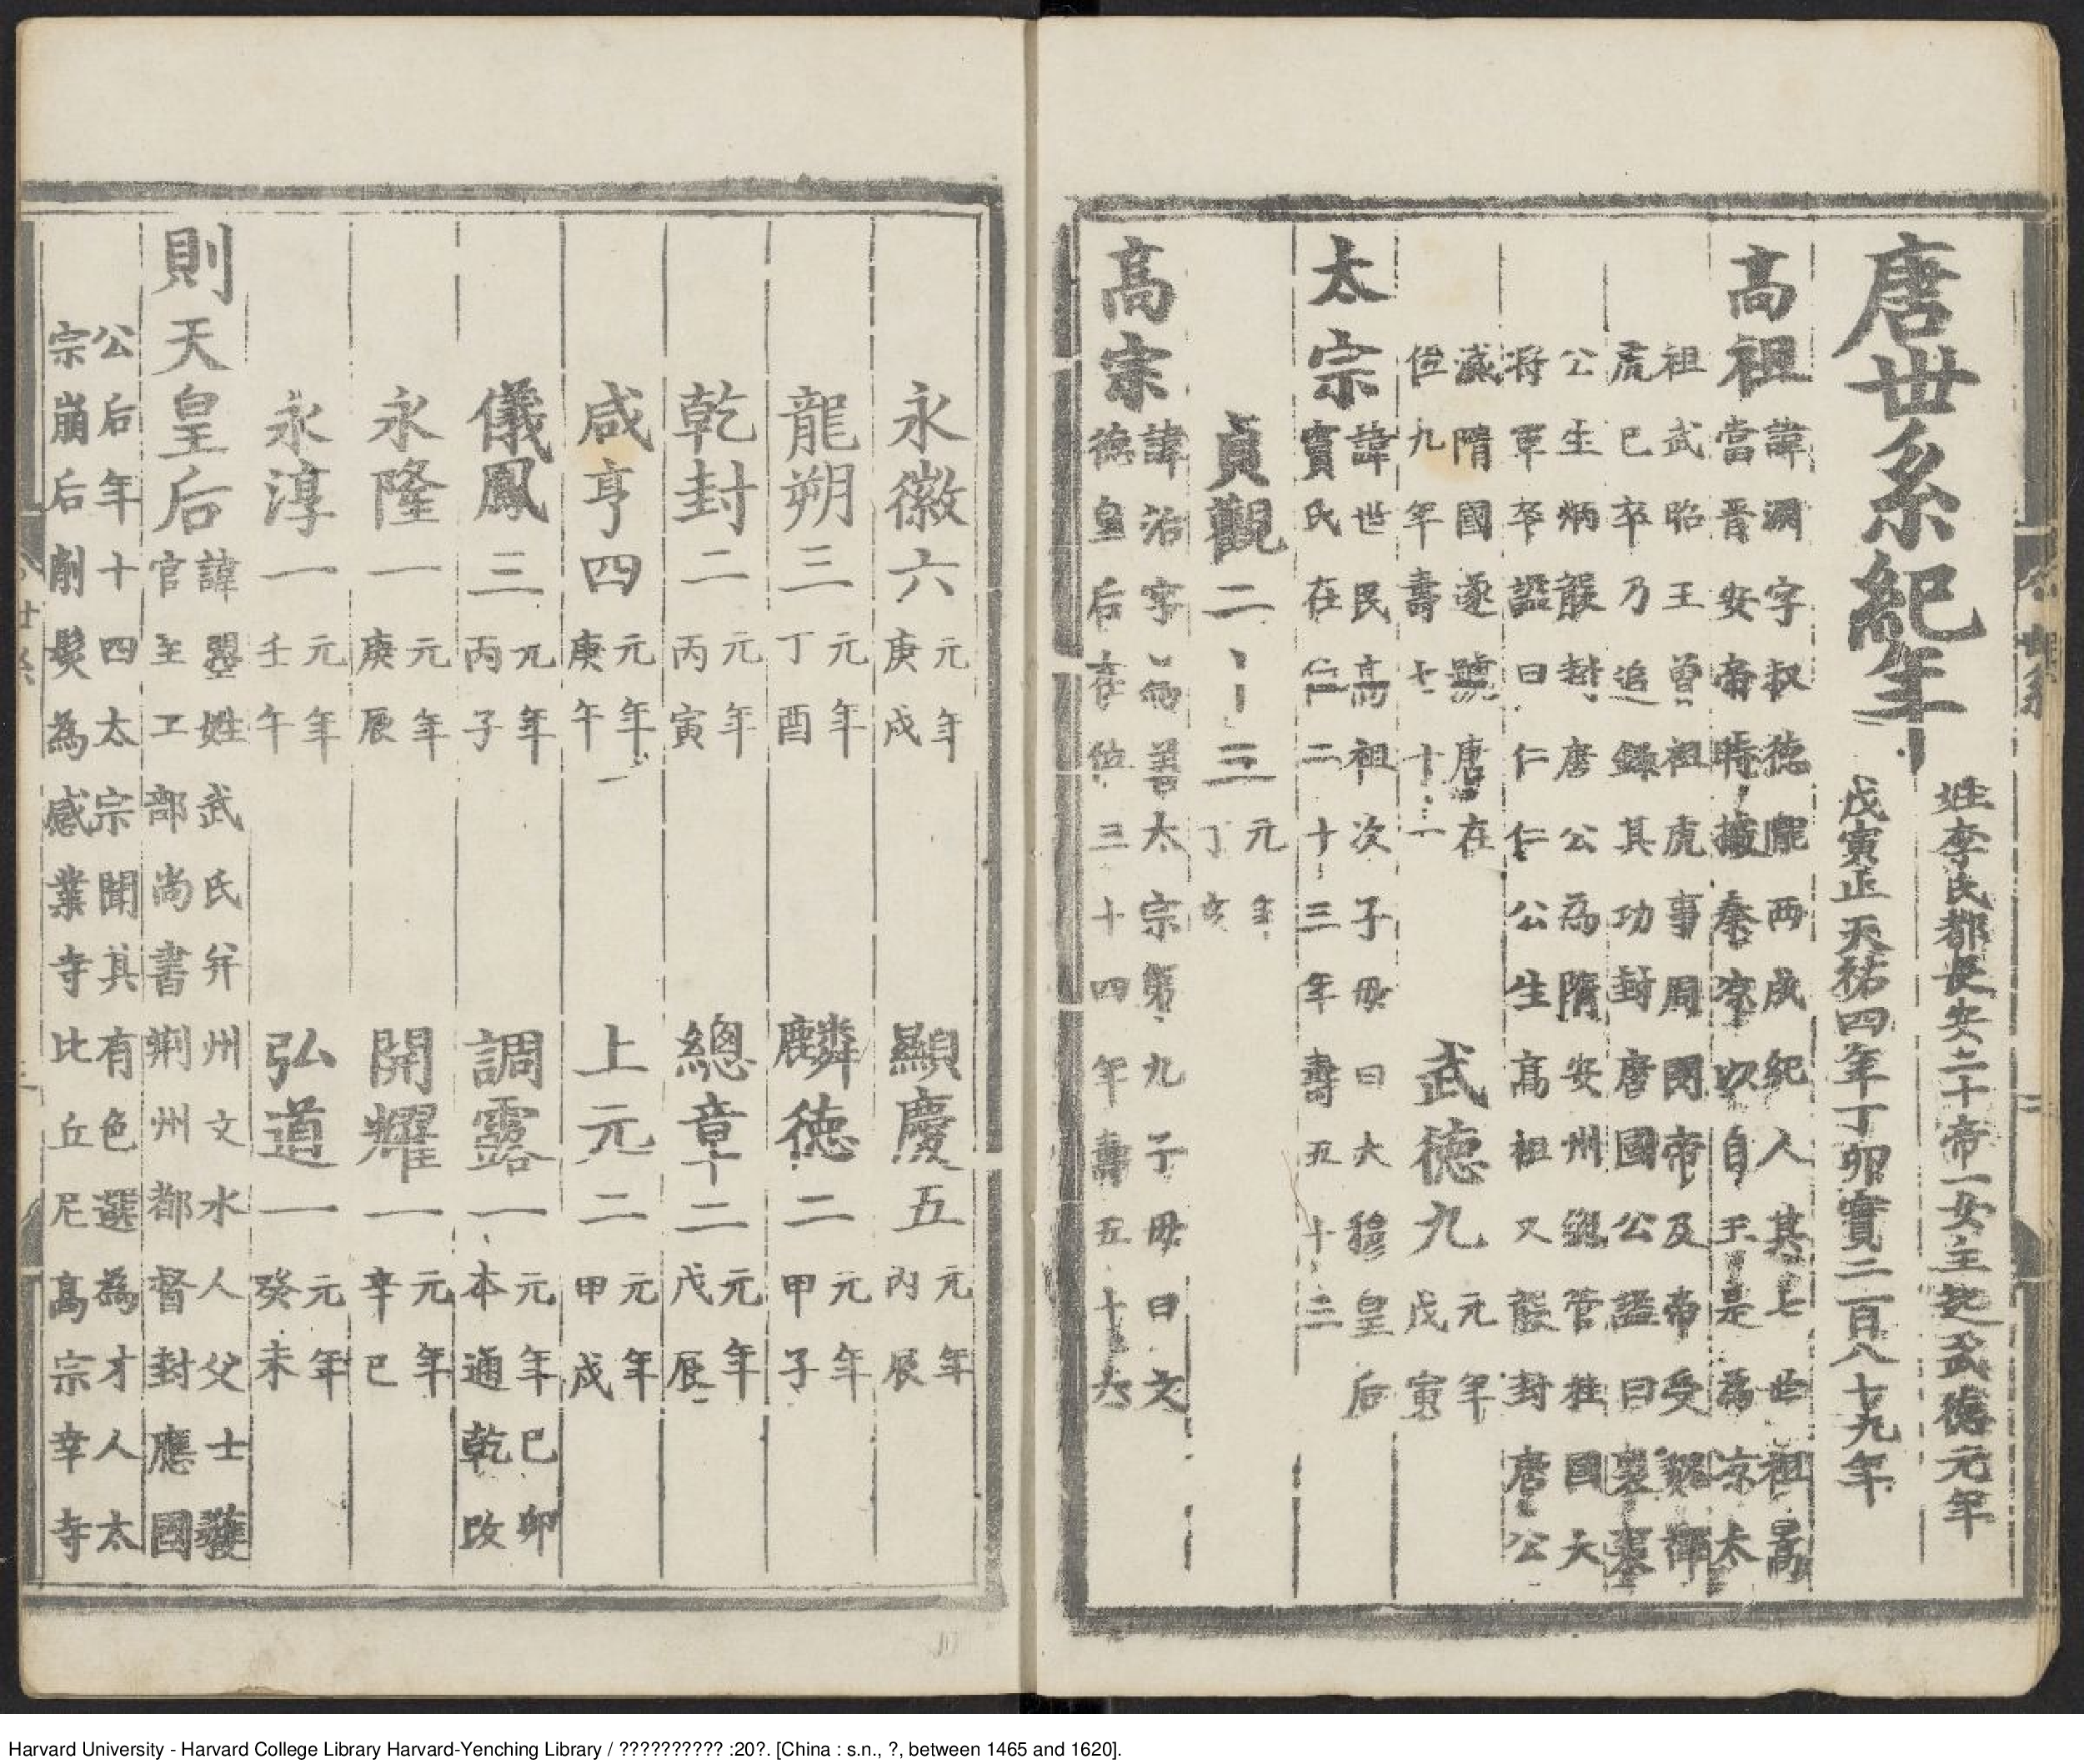 唐世系紀年
姓李氏都長安二十帝一女主起武德元年
戊寅正天祐四年丁卯實二百八十九年
高祖
諱淵字叔德隴西成紀人其七世祖暠
當晉安帝時據秦凉以自王是為凉太
祖武昭王曾祖虎事周閔帝及帝受魏禪
虎已卒乃追錄其功封唐國公謚曰襄襄
公生炳襲封唐公為隋安州緫管柱國大
將軍卒謚曰仁仁公生高祖又襲封唐公
滅隋國遂號唐在
位九年壽七十一
武德九
元年
戊寅
太宗
諱世民高祖次子母曰大穆皇后
竇氏在位二十三年壽五十三
貞觀二十三
元年
丁亥
高宗
諱治字為善太宗第九子母曰文
德皇后在位三十四年壽五十六
永徽六
元年
庚戌
顯慶五
元年
丙辰
龍朔三
元年
丁酉
麟德二
元年
甲子
乾封二
元年
丙寅
總章二
元年
戊辰
咸亨四
元年
庚午
上元二
元年
甲戌
儀鳳三
元年
丙子
調露一
元年己卯
本通乾改
永隆一
元年
庚辰
開耀一
元年
辛巳
永淳一
元年
壬午
弘道一
元年
癸未
則天皇后
諱曌姓武氏并州文水人父士彠
官至工部尚書荆州都督封應國
公后年十四太宗聞其有色選為才人太
宗崩后削髮為感業寺比丘尼高宗幸寺
Harvard University - Harvard College Library Harvard-Yenching Library / ?????????? :20?. [China : s.n., ?, between 1465 and 1620].